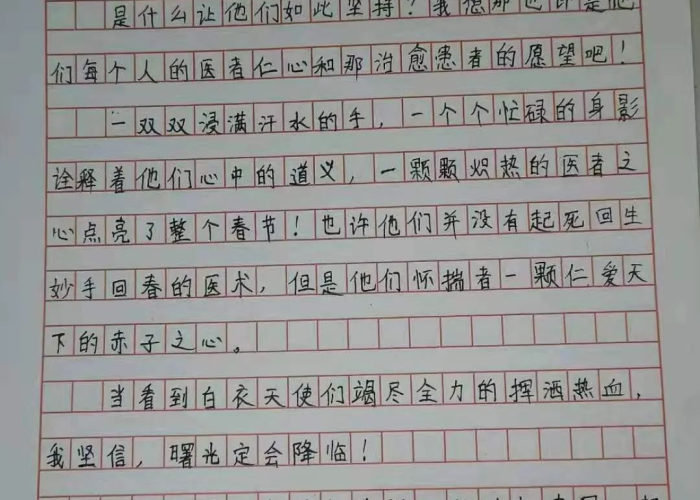 是什么让他们如此坚持？我想那也许是他
们每个人的医者仁心和那治愈患者的愿望吧！
一双双浸满汗水的手，一个个忙碌的身影
诠释着他们心中的道义，一颗颗炽热的医者之
心点亮了整个春节！也许他们并没有起死回生
妙手回春的医术，但是他们怀揣者一颗仁爱天
下的赤子之心。
当看到白衣天使们竭尽全力的挥洒热血，
我坚信，曙光定会降临！